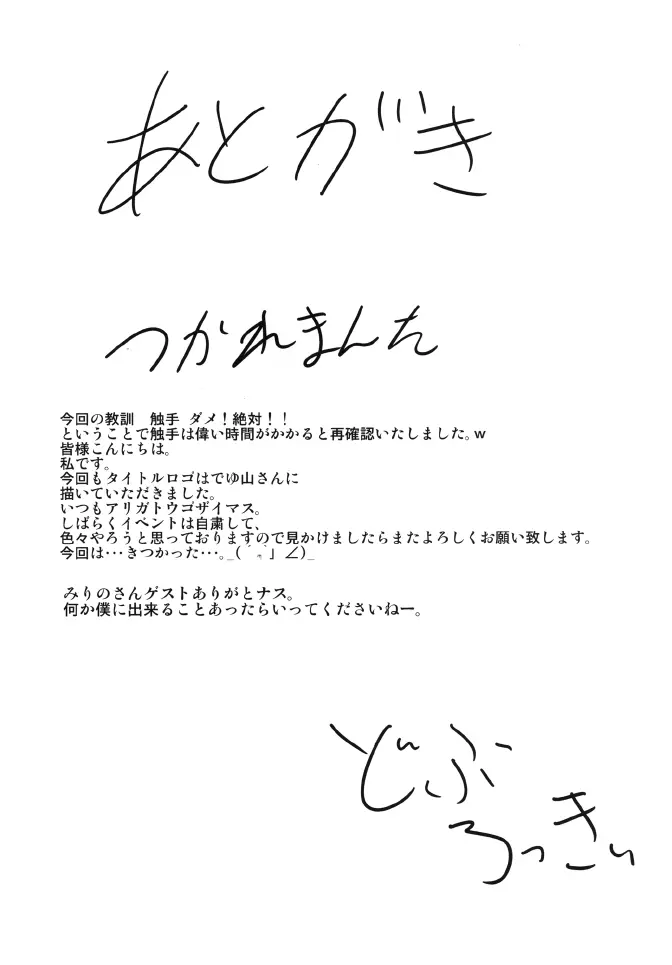 あとがき
つかれまんた
今回の教訓　触手 ダメ！絶対！！
ということで触手は偉い時間がかかると再確認いたしました。w
皆様こんにちは。
私です。
今回もタイトルロゴはでゆ山さんに
描いていただきました。
いつもアリガトウゴザイマス。
しばらくイベントは自粛して、
色々やろうと思っておりますので見かけましたらまたよろしくお願い致します。
今回は･･･きつかった･･･。_(
みりのさんゲストありがとナス。
何か僕に出来ることあったらいってくださいねー。
どぶ
ろっきぃ